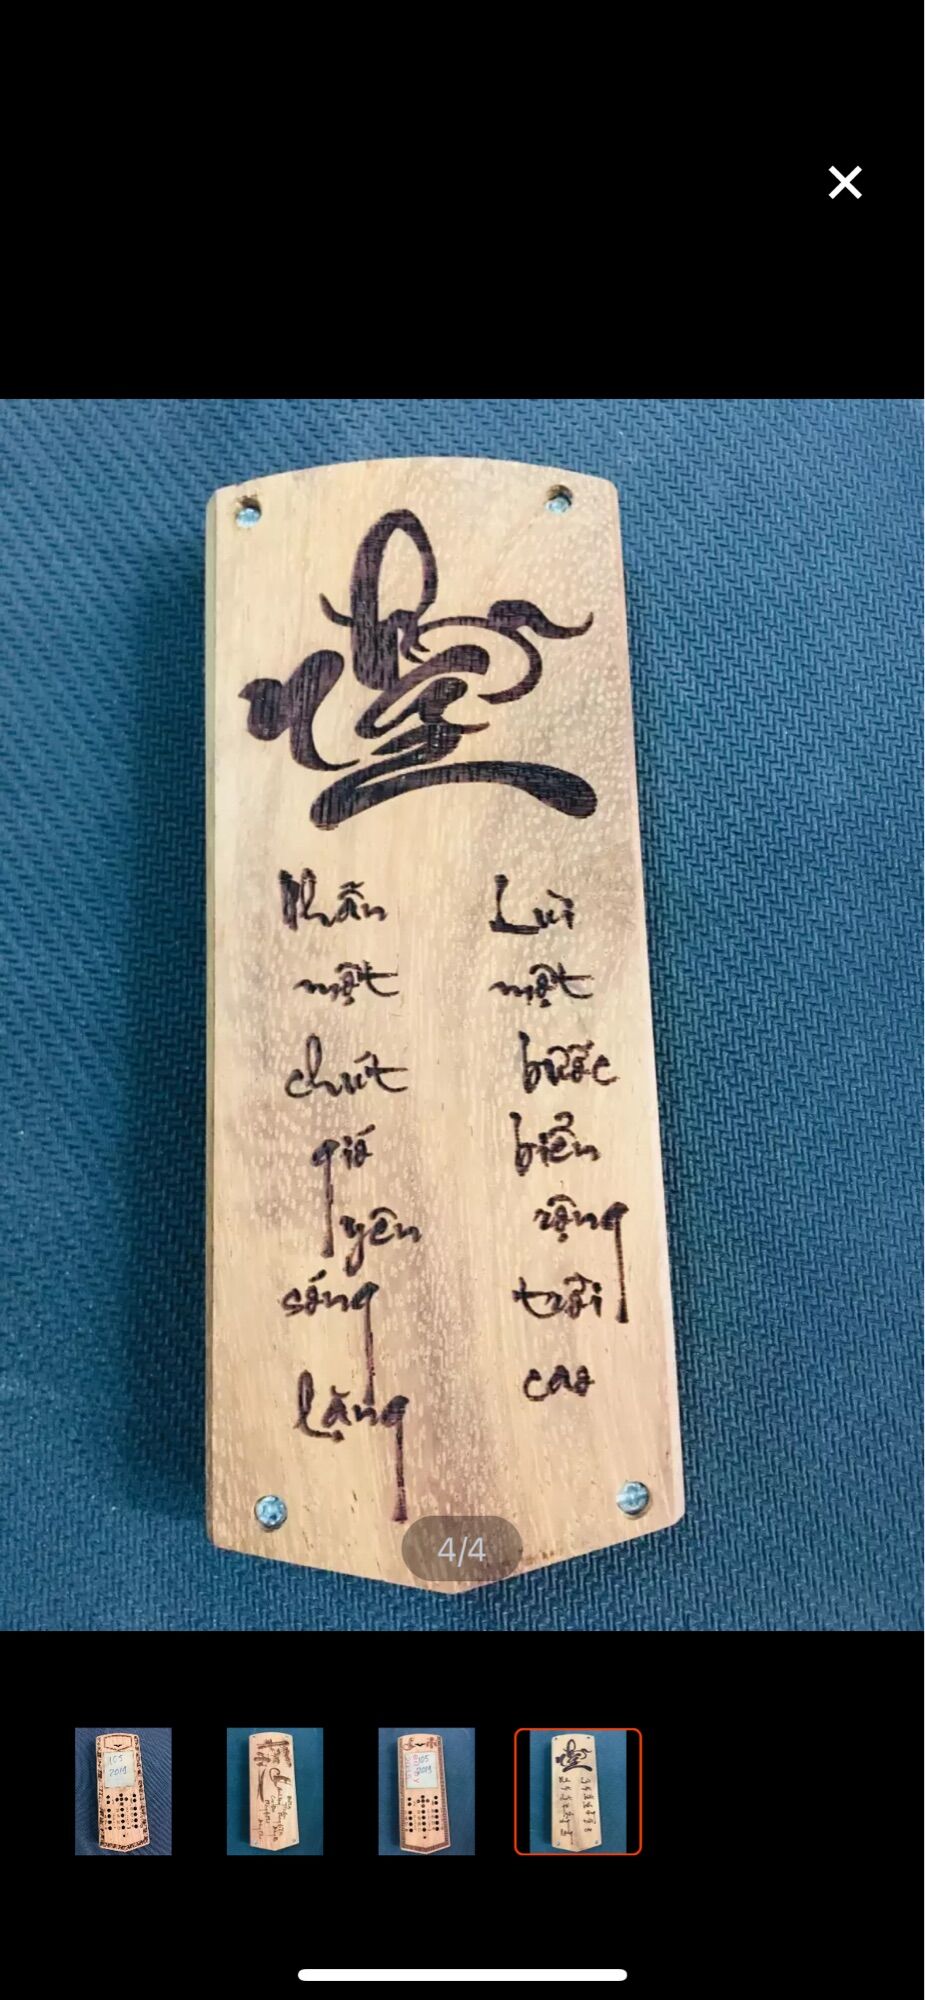 Nhẫn
một
chút
gió
yên
sóng
lặng
Lùi
một
bước
biển
rộng
trời
cao
4/4
105
2019
105
2019